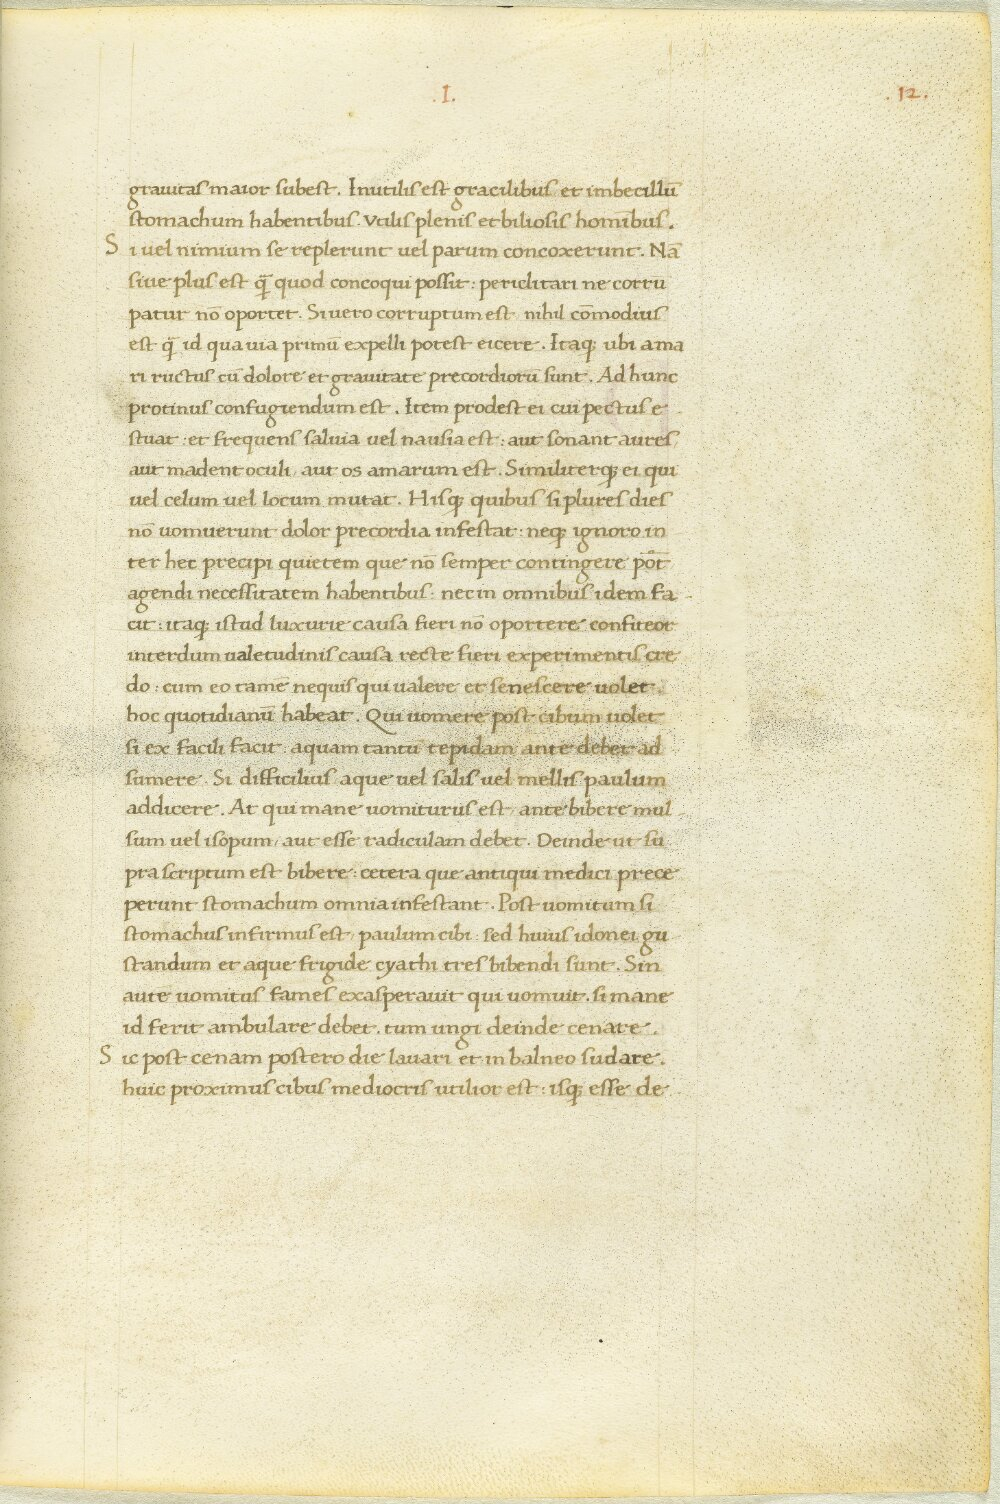 .I. .12.
grauitas maior subest. Inutilis est gracilibus et imbecillū
stomachum habentibus. vtilis plenis et biliosis hominibus.
Si uel nimium se replerunt uel parum concoxerunt. Nā
siue plus est q̄ quod concoqui possit: periclitari ne corru
patur nō oportet. Si uero corruptum est nihil cōmodius
est q̄ id qua uia primū expelli potest eicere. Itaq; ubi ama
ri ructus cū dolore et grauitate precordiorū sunt. Ad hunc
protinus confugiendum est. Item prodest ei cui pectus e
stuat: et frequens saliuia uel nausia est: aut sonant aures
aut madent oculi, aut os amarum est. Similiterq; ei qui
uel celum uel locum mutat. Hisq; quibus si plures dies
nō uomuerunt dolor precordia infestat: neq; ignoro in
ter hec precipi quietem que nō semper contingere pōt
agendi necessitatem habentibus: nec in omnibus idem fa
cit: itaq; istud luxurie causa fieri nō oportere confiteor
interdum ualetudinis causa recte fieri experimentis cre
do: cum eo tamē nequis qui ualere et senescere uolet.
hoc quotidianū habeat. Qui uomere post cibum uolet
si ex facili facit: aquam tantū tepidam ante debet ad
sumere. Si difficilius aque uel salis uel mellis paulum
addicere. At qui mane uomiturus est, ante bibere mul
sum uel isopum, aut esse radiculam debet. Deinde ut su
pra scriptum est bibere: cetera que antiqui medici prece
perunt stomachum omnia infestant. Post uomitum si
stomachus infirmus est, paulum cibi. sed huius idonei gu
standum et aque frigide cyathi tres bibendi sunt. Sin
autē uomitus fames exasperauit qui uomuit. si mane
id ferit ambulare debet. tum ungi deinde cenare.
Sic post cenam postero die lauari et in balneo sudare.
huic proximus cibus mediocris utilior est: isq; esse de